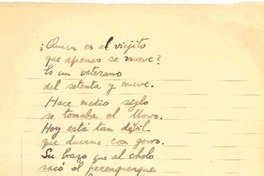 ¿Quien es el viejito
que apenas se mueve?
Es un veterano
del setenta y nueve.
Hace medio siglo
se tomaba el Morro.
Hoy está tan débil
que duerme con gorro.
Su brazo que al cholo
sacó el perenquenque